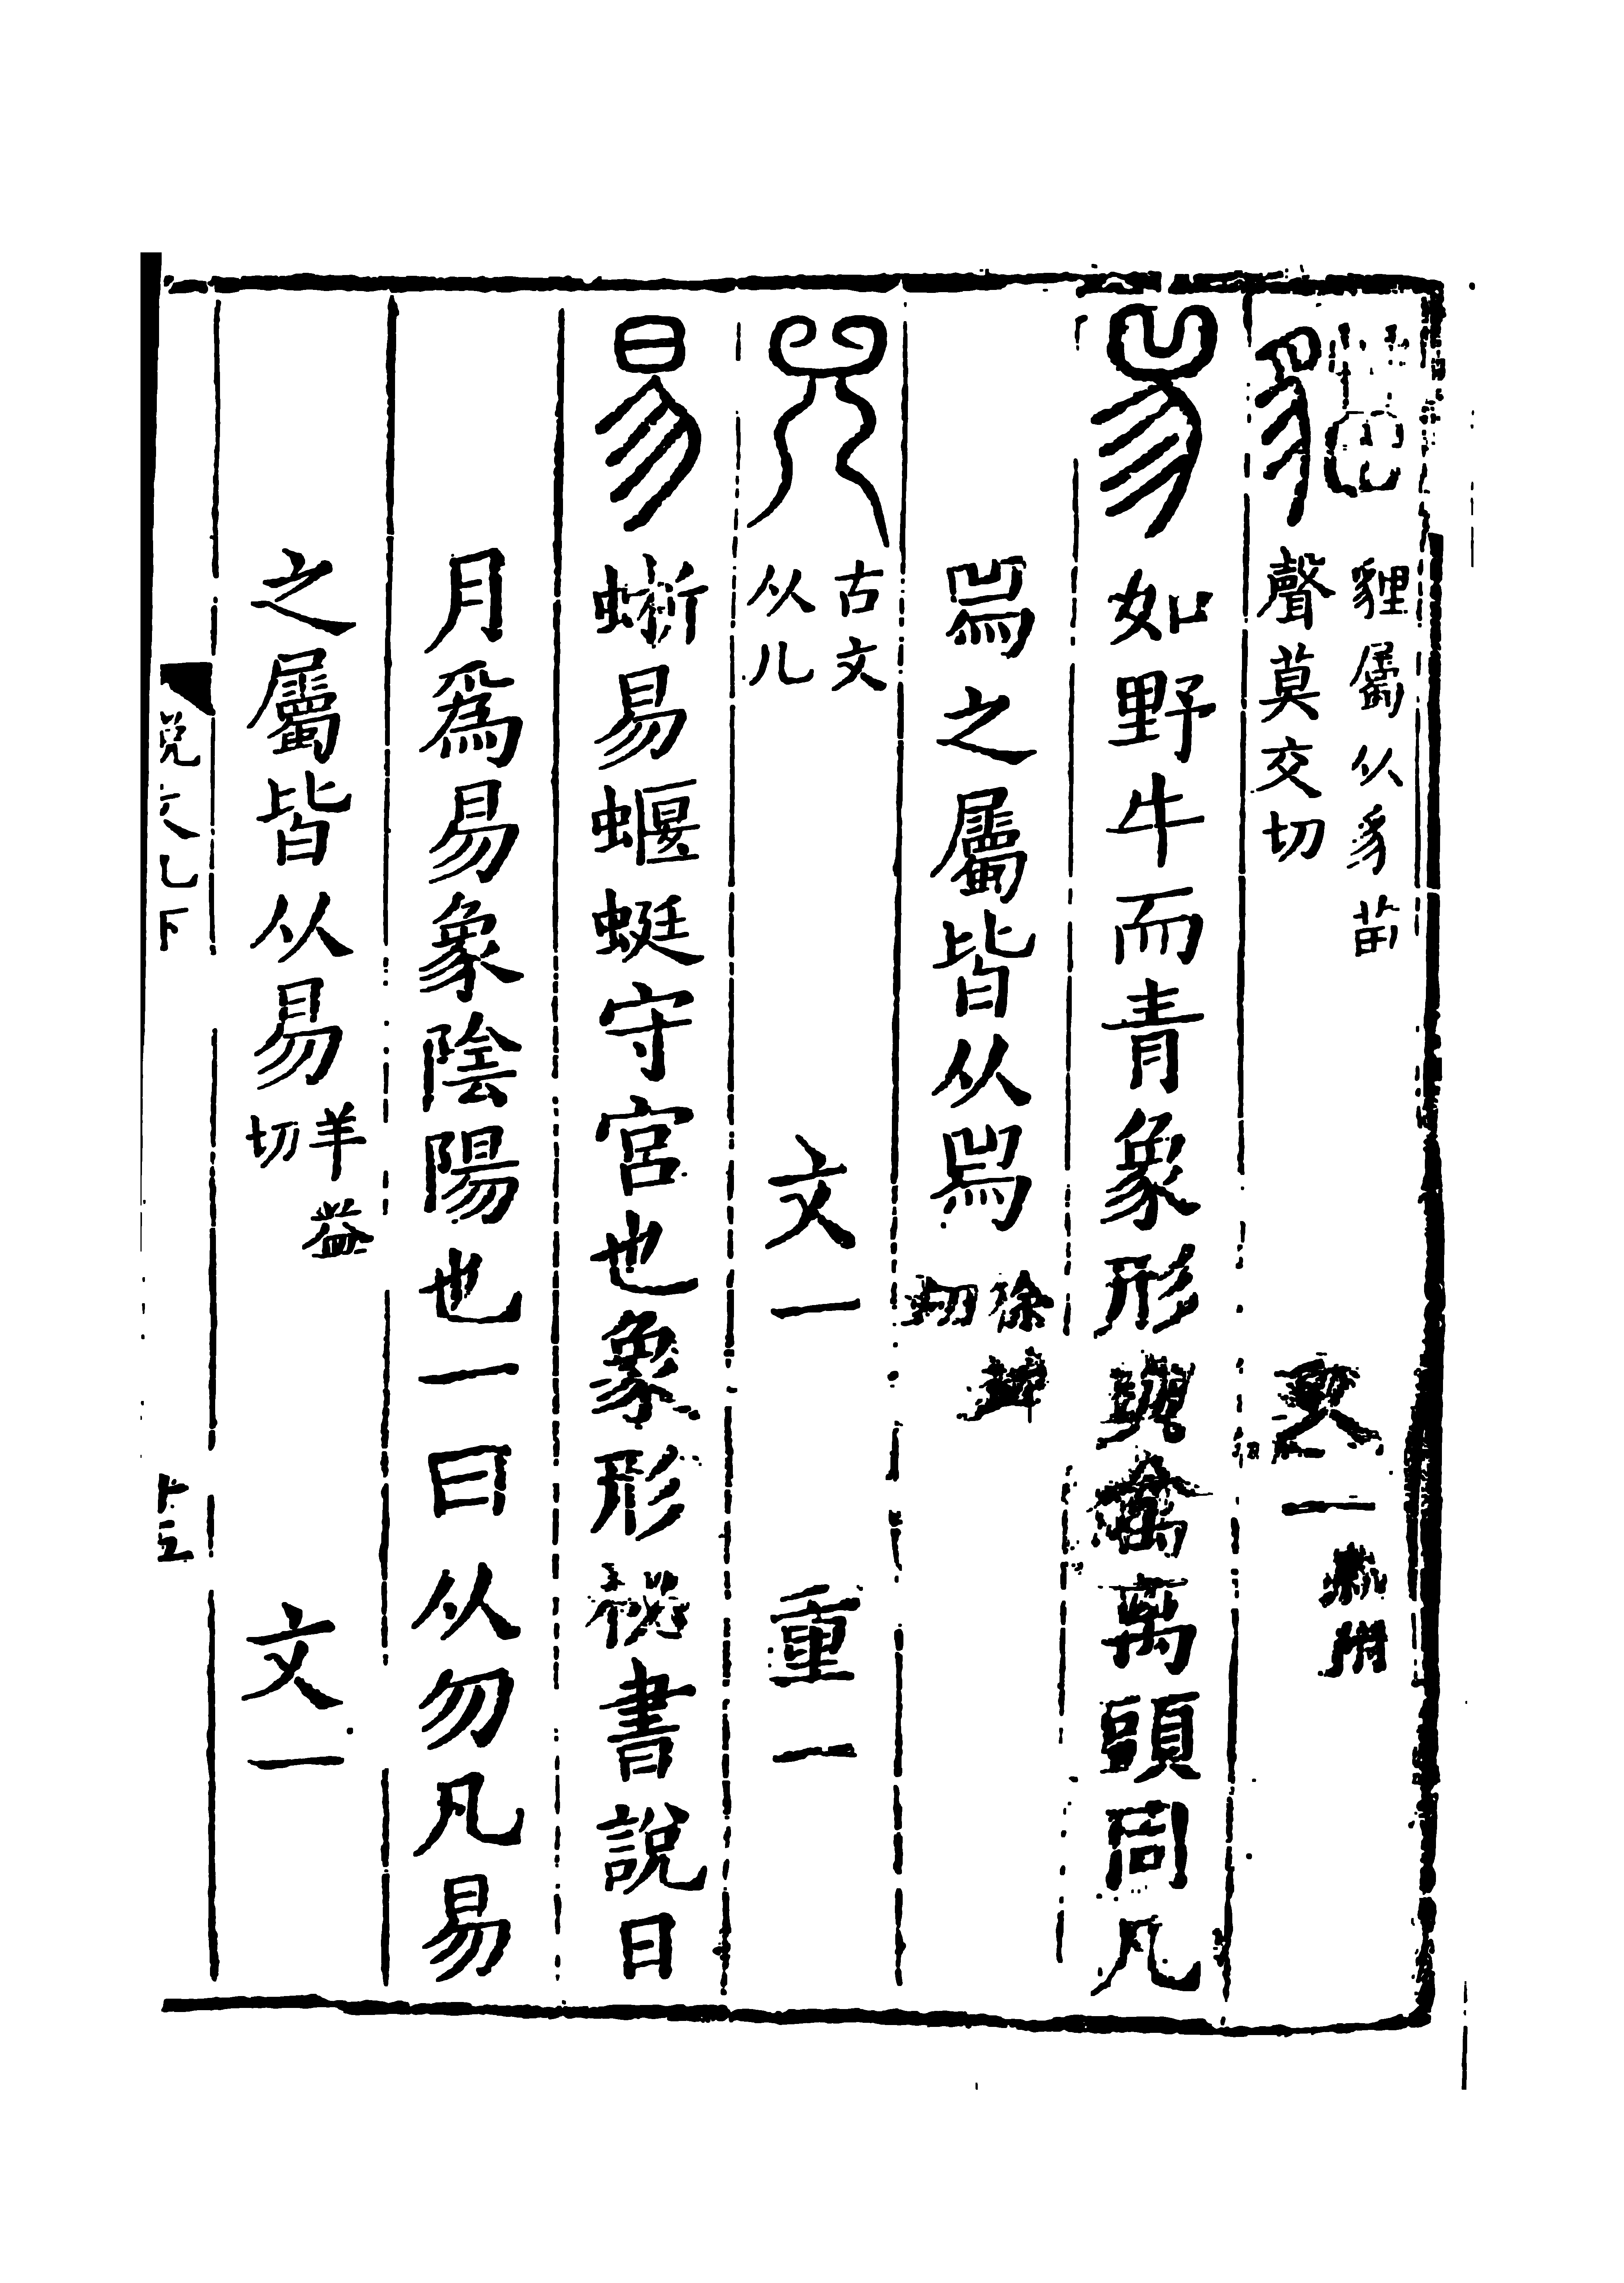 貓 貍屬从豸苗聲莫交切 文一 新附
𤉡 如野牛而青象形與禽离頭同凡
𤉡之屬皆从𤉡 徐姊切
兕 古文从儿 文一 重一
易 蜥易蝘蜓守宮也象形祕書說日
月爲易象陰陽也一曰从勿凡易
之屬皆从易 羊益切 文一
說文九下